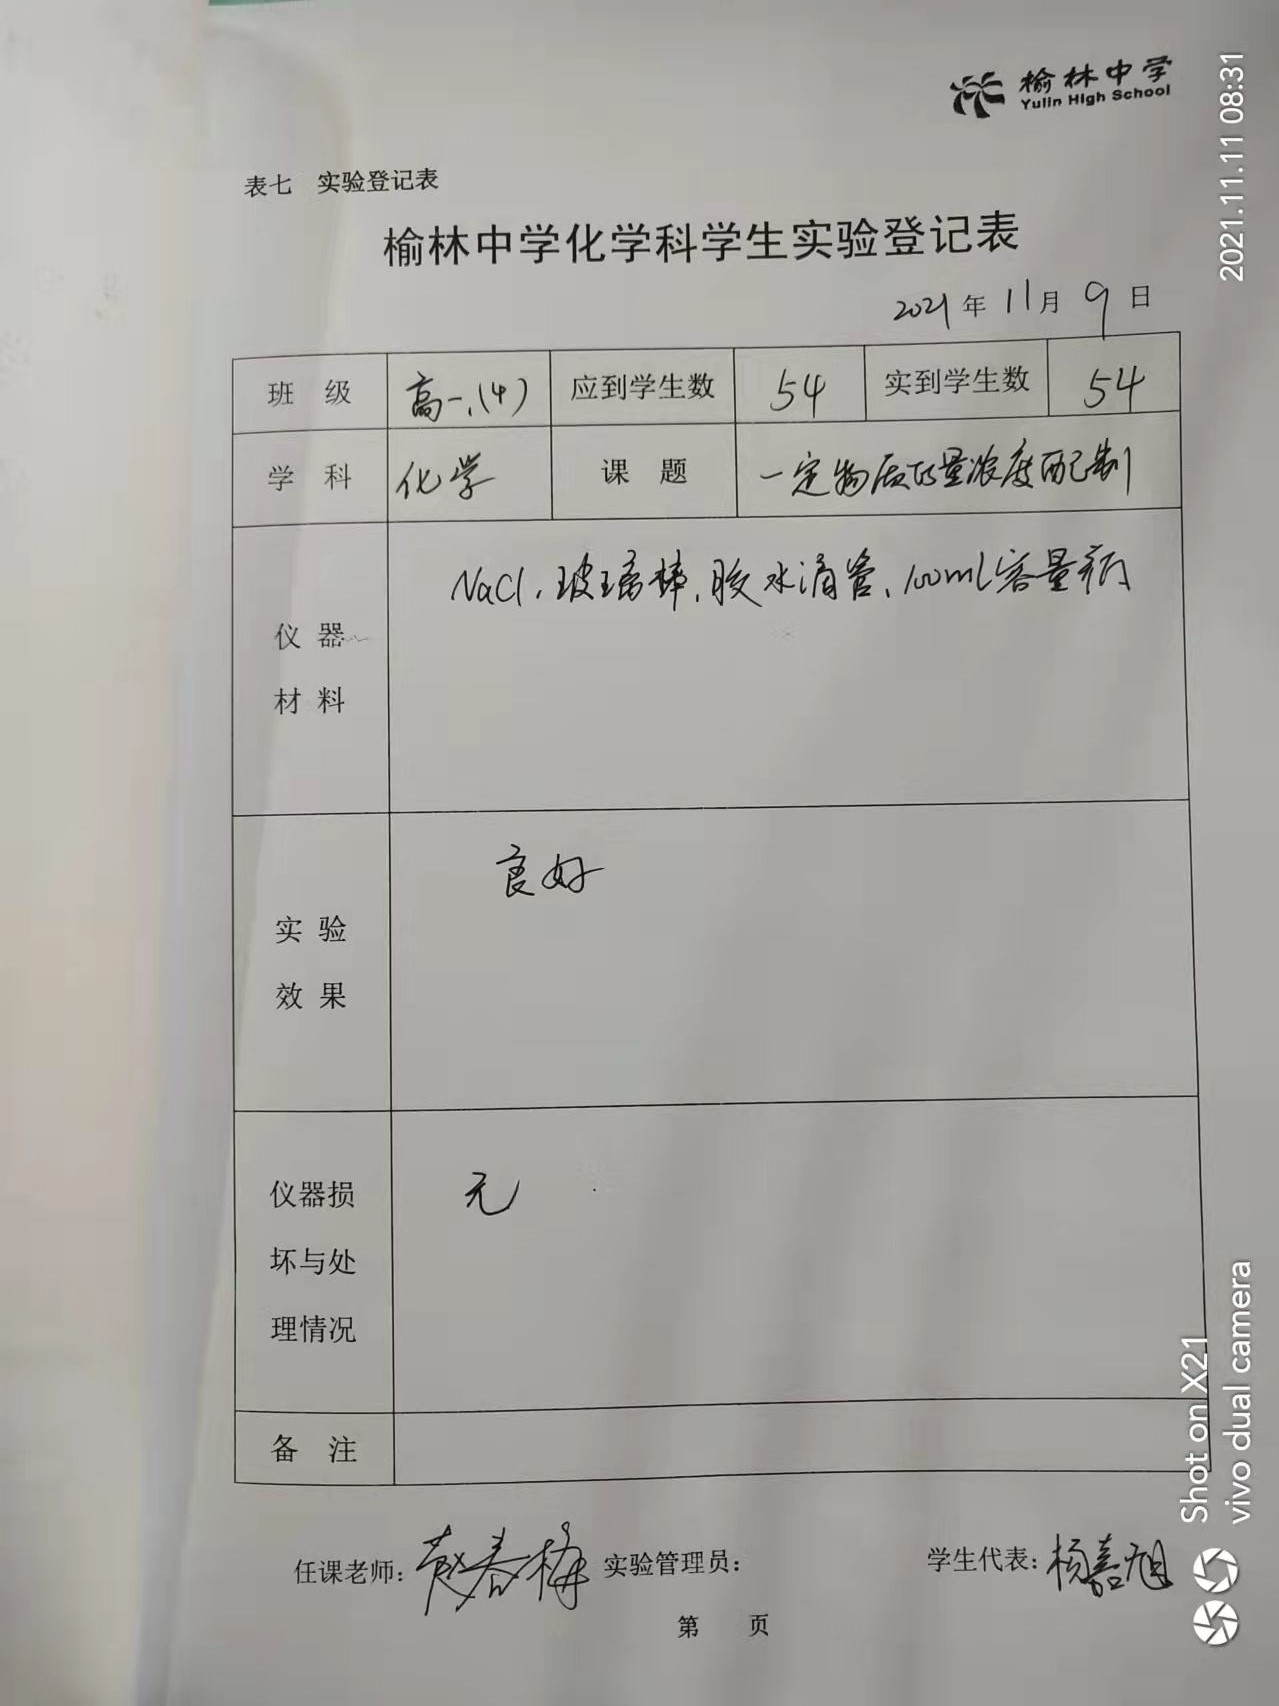 榆林中学
Yulin High School
2021.11.11 08:31
表七 实验登记表
榆林中学化学科学生实验登记表
2021年11月9日
班 级 高一.(4) 应到学生数 54 实到学生数 54
学 科 化学 课 题 一定物质的量浓度配制
NaCl、玻璃棒、胶水滴管、100ml容量瓶
仪 器
材 料
良好
实 验
效 果
无
仪器损
坏与处
理情况
备 注
任课老师: 春梅 实验管理员: 学生代表: 杨嘉旭
第 页
Shot on X21
vivo dual camera